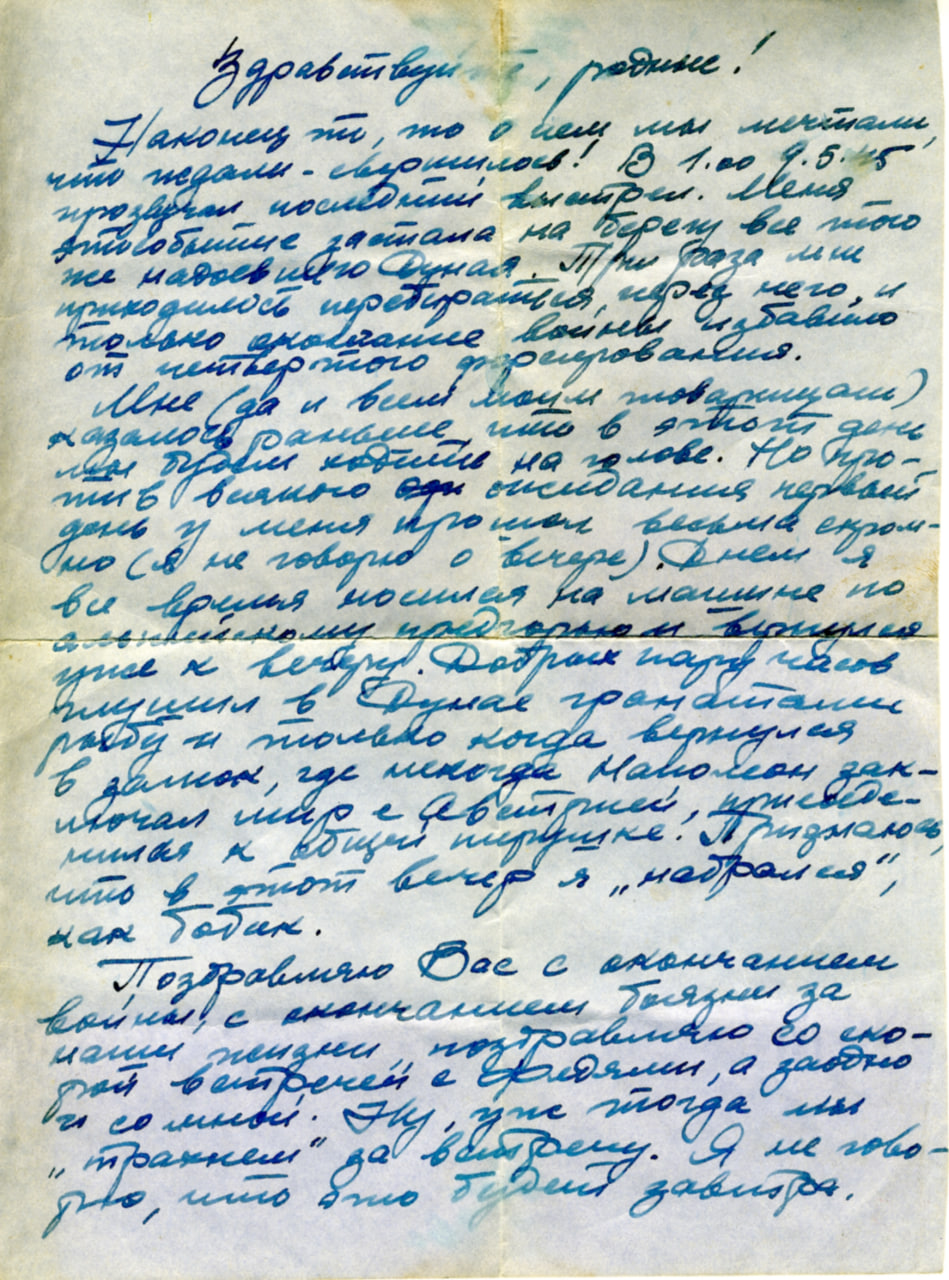 Здравствуйте, родные!
Наконец то, то о чем мы мечтали,
что ждали - свершилось! В 1.00 9.5.45
прозвучал последний выстрел. Меня
это событие застала на берегу все того
же надоевшего Дуная. Три раза мне
приходилось перебираться через него, и
только окончание войны избавило
от четвертого форсирования.
Мне (да и всем моим товарищам)
казалось раньше, что в этот день
мы будем ходить на голове. Но про-
тив всякого ожидания первый
день у меня прошел весьма скром-
но (я не говорю о вечере). Днем я
все время носился на машине по
альпийскому предгорью и вернулся
уже к вечеру. Добрых пару часов
глушил в Дунае гранатами
рыбу и только когда вернулся
в замок, где некогда Наполеон зак-
лючал мир с Австрией, присоеде-
нился к общей пирушке. Признаюсь,
что в этот вечер я „набрался“,
как бобик.
Поздравляю Вас с окончанием
войны, с окончанием боязни за
наши жизни, поздравляю со ско-
рой встречей с Федями, а заодно
и со мной. Ну, уж тогда мы
„трахнем“ за встречу. Я не гово-
рю, что это будет завтра.